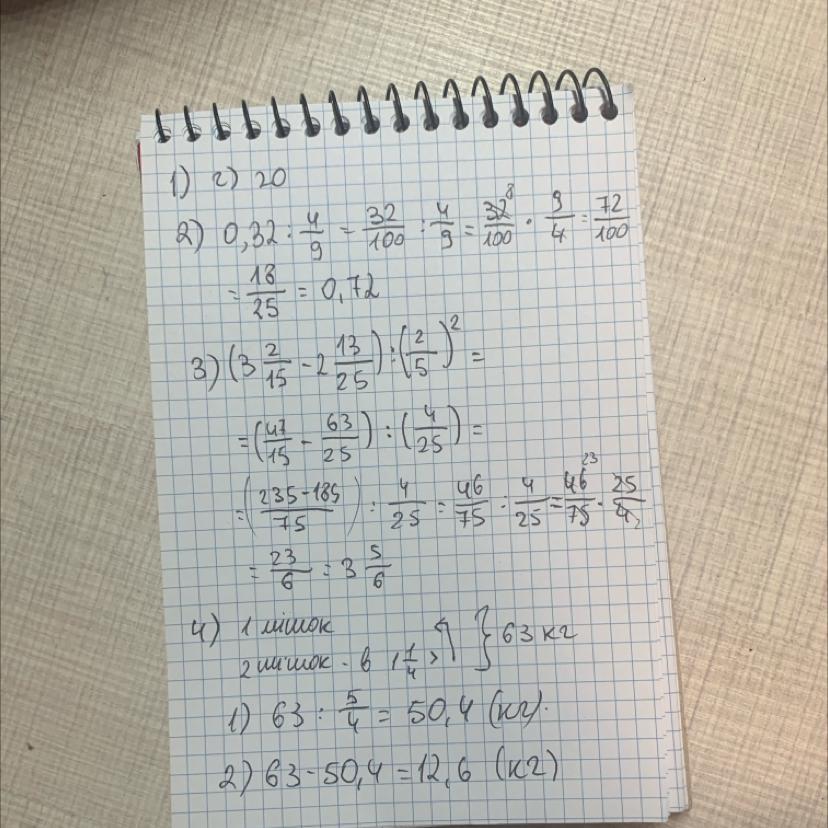 1) г) 20
2) 0,32 : 4/9 = 32/100 : 4/9 = 32/100 8 · 9/4 = 72/100
= 18/25 = 0,72
3) (3 2/15 - 2 13/25) : (2/5)² =
= (47/15 - 63/25) : (4/25) =
= (235-189/75) : 4/25 = 46/75 : 4/25 = 46/75 23 · 25/4 2
= 23/6 = 3 5/6
4) 1 мішок
2 мішок - в 1 1/4 > } 63 кг
1) 63 : 5/4 = 50,4 (кг).
2) 63-50,4 = 12,6 (кг)